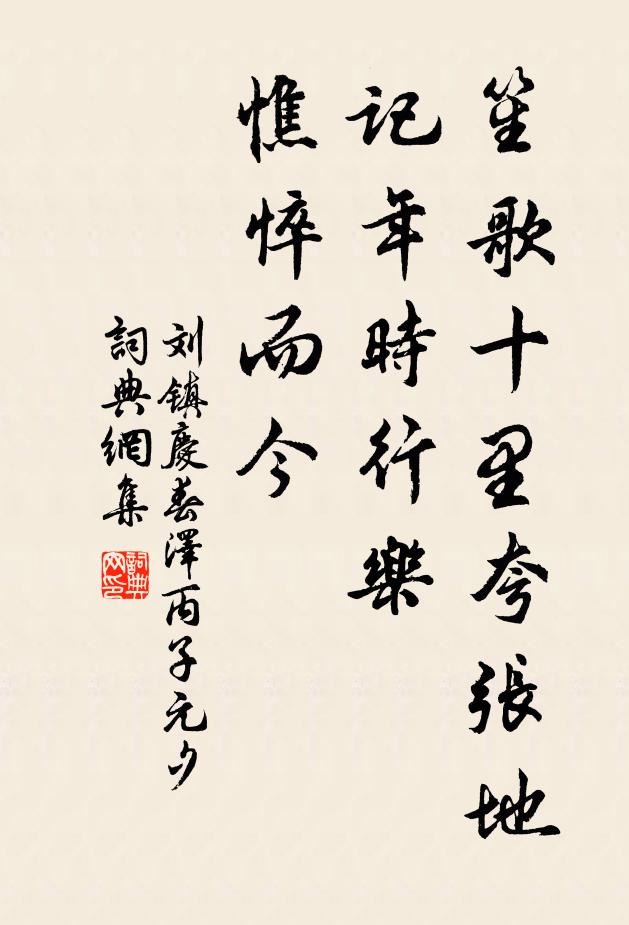 笙歌十里夸張地
記年時行樂
憔悴而今
刘鎮慶春澤丙子元夕
詞典網集
詞典
网印